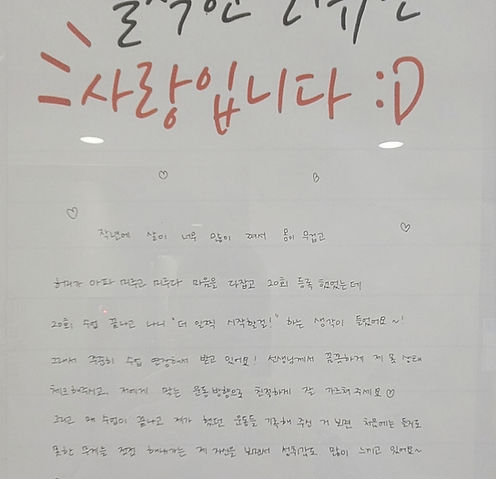 솔직한 리뷰는
사랑입니다 :D
작년에 살이 너무 많이 쪄서 몸이 무겁고
허리가 아파 미루고 미루다 마음을 다잡고 20회 등록 했었는데
20회 수업 끝나고 나니 "더 일찍 시작할걸!" 하는 생각이 들었어요~!
그래서 꾸준히 수업 연장해서 받고 있어요! 선생님께서 꼼꼼하게 제 몸 상태
체크해주시고, 저에게 맞는 운동 방향으로 친절하게 잘 가르쳐 주세요♡
그리고 매 수업이 끝나고 제가 했던 운동들 기록해 주신 거 보면 처음에는 들지도
못한 무게를 점점 해내가는 제 자신을 보면서 성취감도 많이 느끼고 있어요~